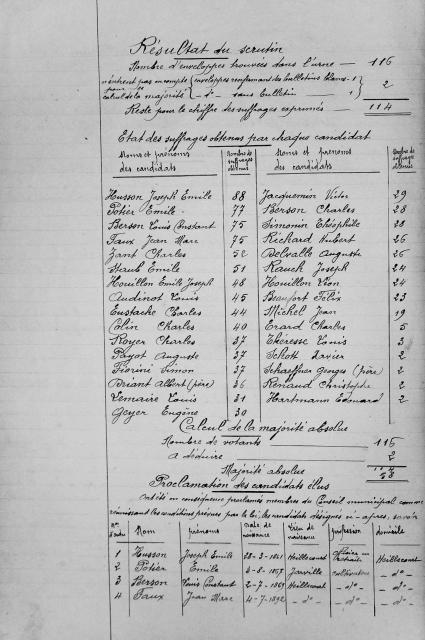 Résultat du scrutin
Nombre d'enveloppes trouvées dans l'urne — 116
n'entrent pas en compte { enveloppes renfermant des bulletins blancs - 1 }
pour
calcul de la majorité { - d° - sans bulletin 1 } 2
Reste pour le chiffre des suffrages exprimés 114
Etat des suffrages obtenus par chaque candidat
Noms et prénoms des candidats | Nombre de suffrages obtenus | Noms et prénoms des candidats | Nombre de suffrages obtenus
Husson Joseph Emile 88 Jacquemin Victor 29
Potier Emile 77 Berson Charles 28
Berson Louis Constant 75 Simonin Théophile 28
Faux Jean Marc 75 Richard Hubert 26
Zant Charles 52 Delvalle Auguste 26
Staub Emile 51 Rauch Joseph 24
Houillon Emile Joseph 48 Houillon Léon 24
Audinot Louis 45 Beaufort Félix 23
Eustache Charles 44 Michel Jean 19
Colin Charles 40 Erard Charles 5
Royer Charles 37 Thérèse Louis 3
Payot Auguste 37 Schott Xavier 2
Fiorini Simon 37 Schaeffner Georges (père) 2
Briant Albert (père) 36 Renaud Christophe 2
Lemaire Louis 31 Hartmann Edouard 2
Geyer Eugène 30
Calcul de la majorité absolue
Nombre de votants 116
a déduire 2
Majorité absolue 58
Proclamation des candidats élus
ont été en conséquence proclamés membres du Conseil municipal comme
réunissant les conditions prévues par la loi, les candidats désignés ci-après, savoir
N° d'ordre | Nom | prénoms | Date de naissance | Lieu de naissance | profession | domicile
1 Husson Joseph Emile 28-3-1861 Heillecourt en retraite Heillecourt
2 Potier Emile Jarville cultivateur - d° -
3 Berson Louis Constant 2-7-1869 Heillecourt - d° - - d° -
4 Faux Jean Marc 4-7-1892 - d° - - d° - - d° -